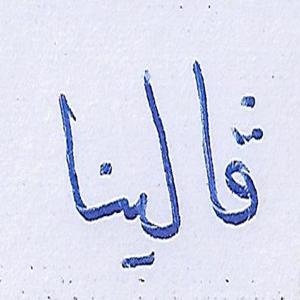 ڨالينا